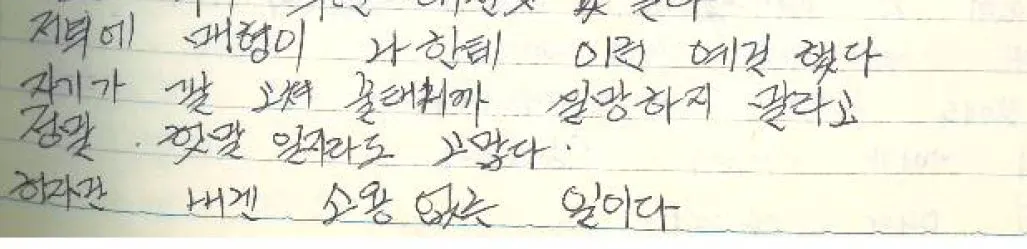 저녁에 매형이 나한테 이런 예길 했다
자기가 잘 고쳐 줄태니까 실망하지 말라고
정말. 헛말 일지라도 고맙다.
하지만 내겐 소용 없는 일이다